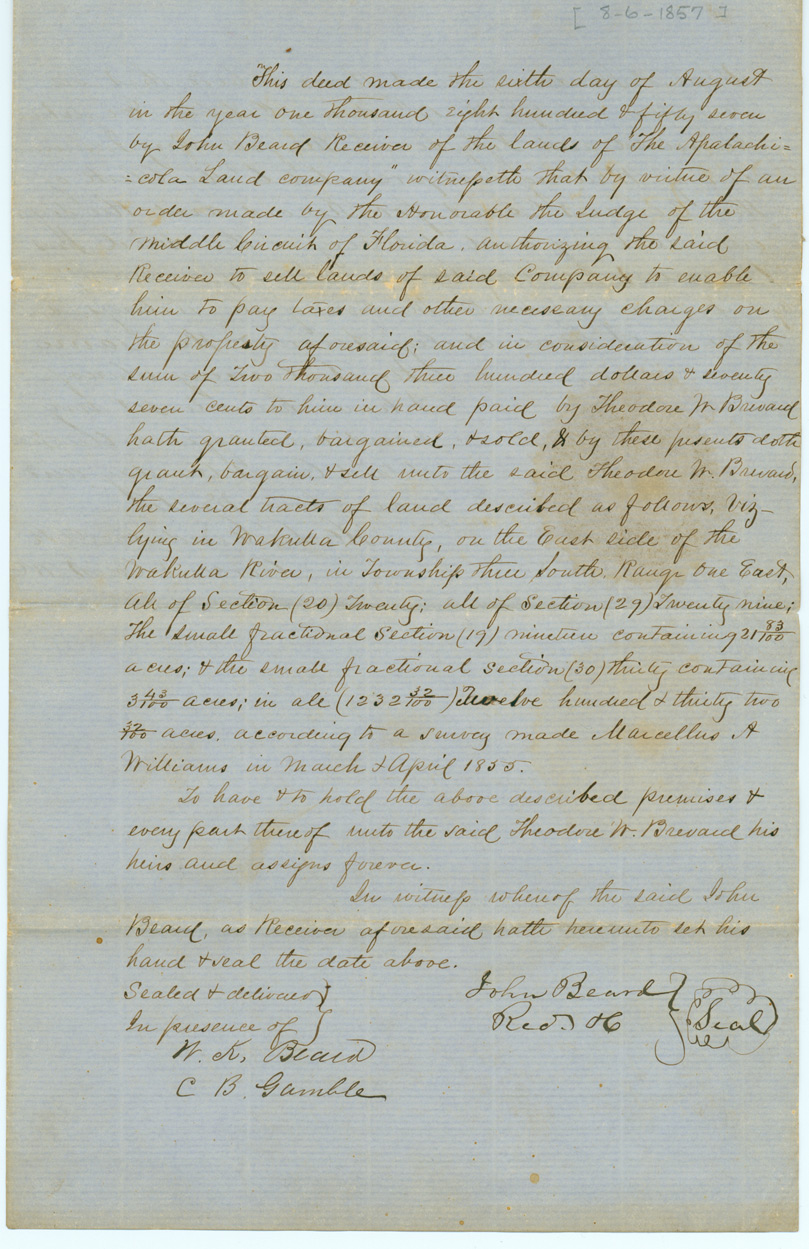 [ 8-6-1857 ]
This deed made the sixth day of August
in the year one thousand eight hundred & fifty seven
by John Beard Receiver of the lands of "The Apalachi=
=cola Land company" witnesseth that by virtue of an
order made by the Honorable the Judge of the
Middle Circuit of Florida, authorizing the said
Receiver to sell lands of said Company to enable
him to pay taxes and other necessary charges on
the property aforesaid; and in consideration of the
sum of Two thousand three hundred dollars & seventy
seven cents to him in hand paid by Theodore W Brevard
hath granted, bargained, & sold, & by these presents doth
grant, bargain, & sell unto the said Theodore W. Brevard,
the several tracts of land described as follows, Viz-
lying in Wakulla County, on the East side of the
Wakulla River, in Township three South, Range One East,
All of Section (20) Twenty; all of Section (29) Twenty nine;
The small fractional Section (19) nineteen containing 21 83/100
acres; & the small fractional section (30) thirty containing
3 43/100 acres; in all (1232 32/100) Twelve hundred & thirty two
32/100 acres, according to a survey made Marcellus A
Williams in March & April 1855.
To have & to hold the above described premises &
every part thereof unto the said Theodore W. Brevard his
heirs and assigns forever.
In witness whereof the said John
Beard, as Receiver aforesaid hath hereunto set his
hand & seal the date above.
Sealed & delivered } John Beard }
In presence of } Rec. &c } Seal
W. K. Beard
C B. Gamble